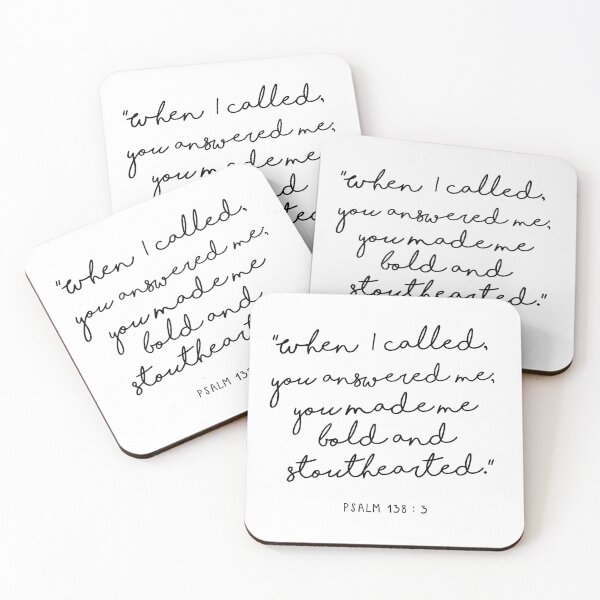 "When I called,
you answered me;
you made me
"When I called,
you answered me;
you made me
bold and
stouthearted."
"When I called,
you answered me;
you made me
bold and
stouthearted
PSALM
"When I called,
you answered me;
you made me
bold and
stouthearted."
PSALM 138 : 3